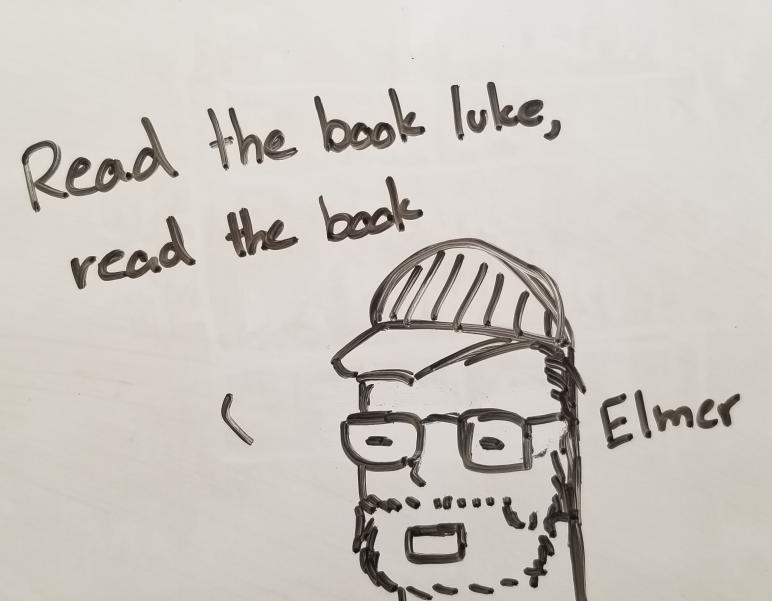 Read the book luke,
read the book
Elmer